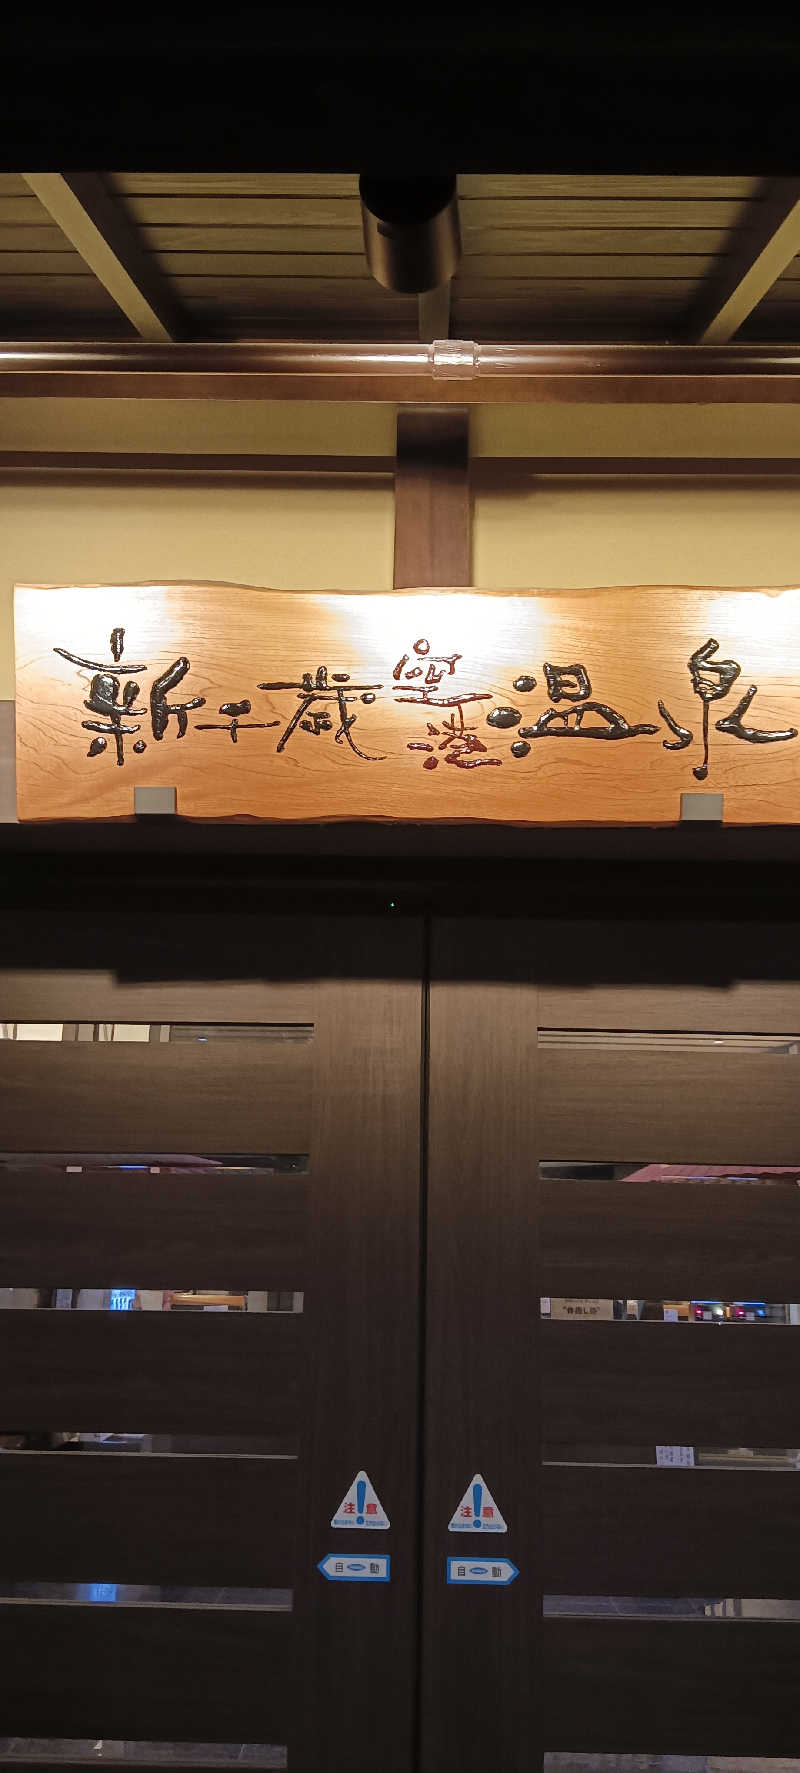 新千歳空港温泉
注意
注意
自動
自動